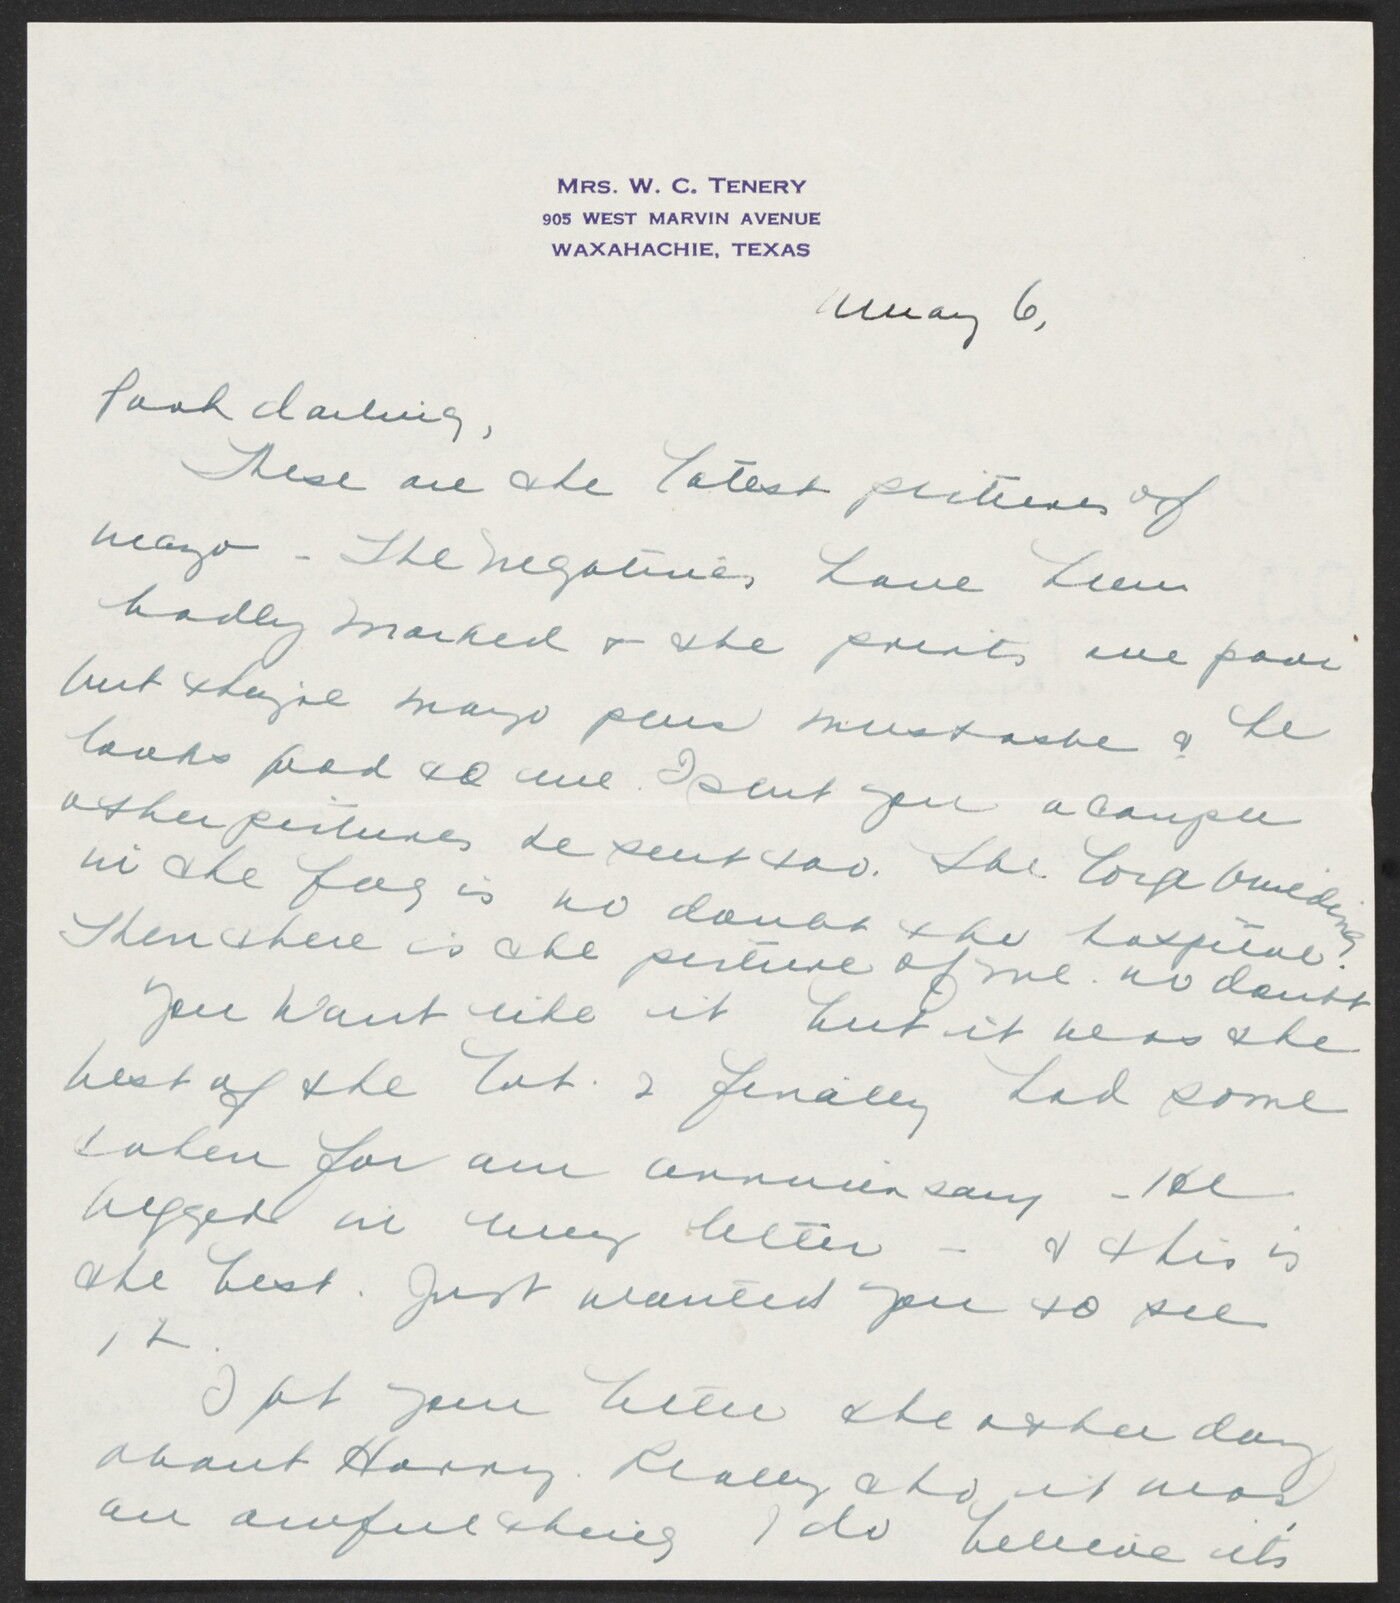 MRS. W. C. TENERY
905 WEST MARVIN AVENUE
WAXAHACHIE, TEXAS
May 6,
Pooh darling,
These are the latest pictures of
Mayo - The negatives have been
badly marked & the prints are poor
but they're Mayo plus mustashe & he
looks good to me. I sent you a couple
other pictures he sent too. The large building
in the fog is no doubt the hospital.
Then there is the picture of me. No doubt
you wont like it but it was the
best of the lot. I finally had some
taken for our anniversary - He
begged in every letter - & this is
the best. Just wanted you to see
it.
I got your letter the other day
about Harry. Really tho, it was
an awful thing I do believe its